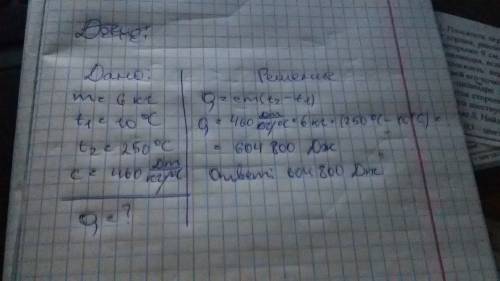 Дано:
Дано:
m = 6 кг
t₁ = 10 °C
t₂ = 250 °C
c = 460 Дж/кг·°C
Q = ?
Решение
Q = cm(t₂ - t₁)
Q = 460 Дж/кг·°C · 6 кг · (250°C - 10°C) =
= 604 800 Дж
Ответ: 604 800 Дж